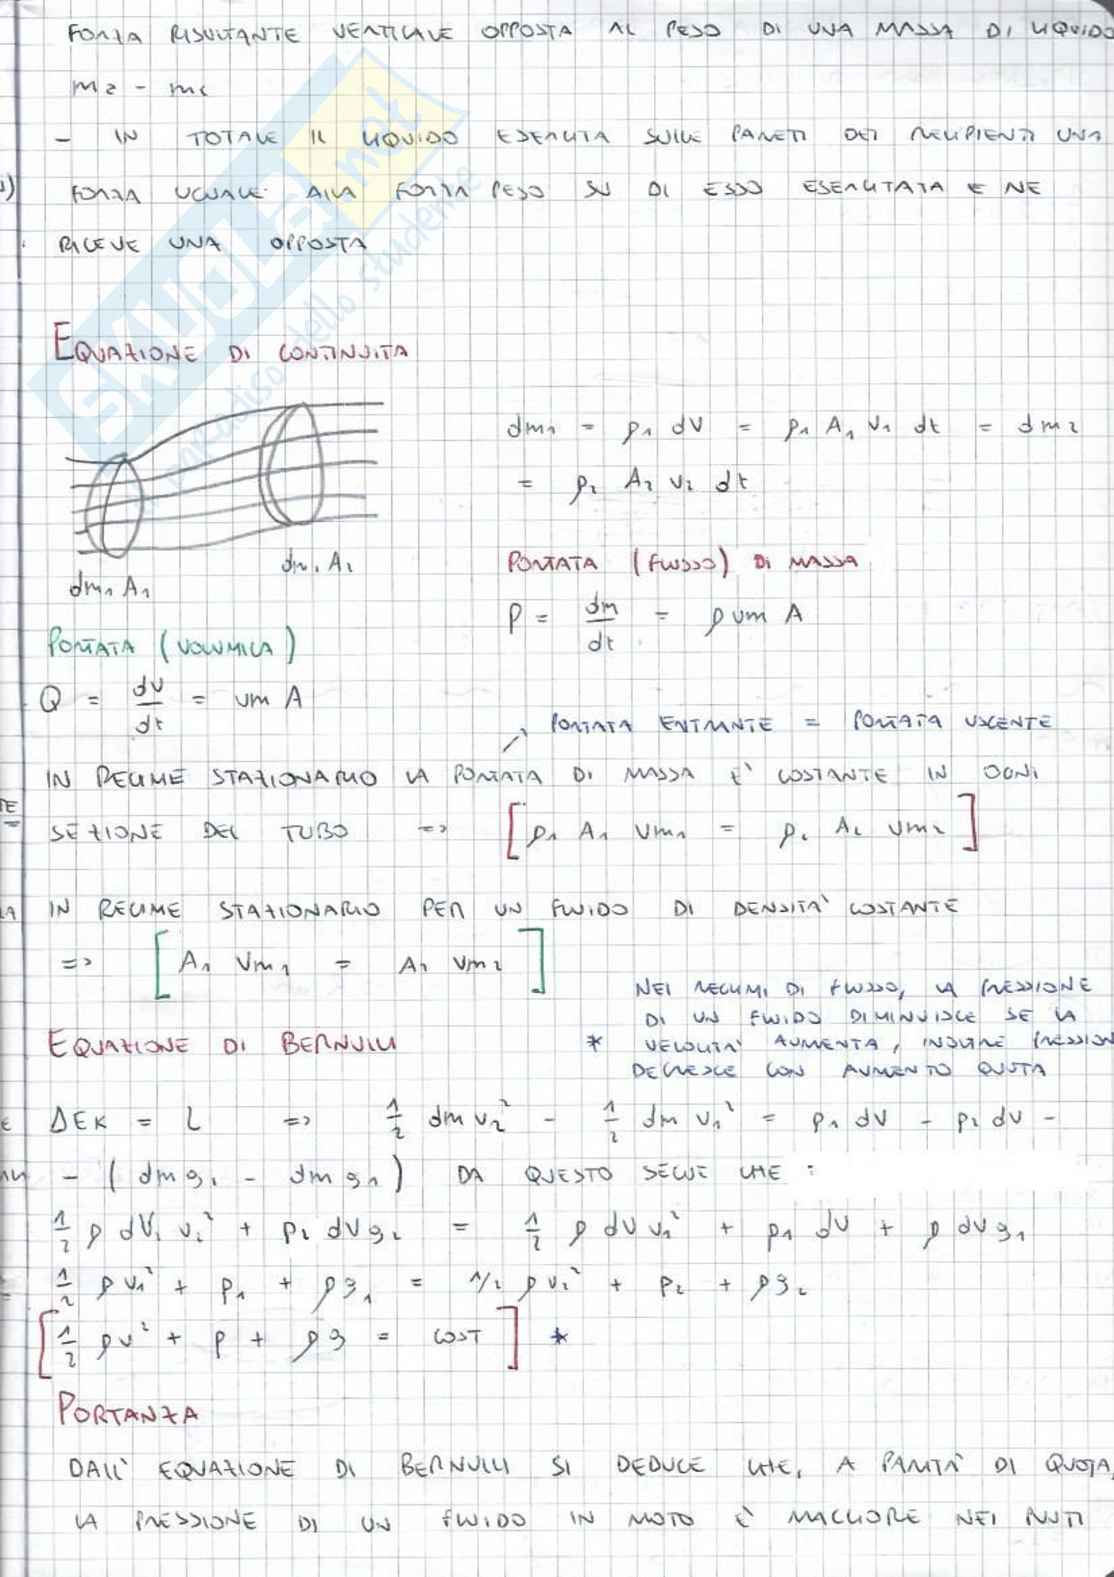 FORZA RISULTANTE VERTICALE OPPOSTA AL PESO DI UNA MASSA DI LIQUIDO
m2 - m1
- IN TOTALE IL LIQUIDO ESERCITA SULLE PARETI DEI RECIPIENTI UNA
FORZA UGUALE ALLA FORZA PESO SU DI ESSO ESERCITATA E NE
RICEVE UNA OPPOSTA
EQUAZIONE DI CONTINUITA
dm1 = ρ1 dV = ρ1 A1 v1 dt = dm2
= ρ2 A2 v2 dt
dm1 A1
dm2 A2
PORTATA (FLUSSO) DI MASSA
P = dm/dt = ρ vm A
PORTATA (VOLUMICA)
Q = dV/dt = vm A
PORTATA ENTRANTE = PORTATA USCENTE
IN REGIME STAZIONARIO LA PORTATA DI MASSA E' COSTANTE IN OGNI
SEZIONE DEL TUBO => [ρ1 A1 vm1 = ρ2 A2 vm2]
IN REGIME STAZIONARIO PER UN FLUIDO DI DENSITA' COSTANTE
=> [A1 vm1 = A2 vm2]
NEI REGIMI DI FLUSSO, LA PRESSIONE
DI UN FLUIDO DIMINUISCE SE LA
* VELOCITA' AUMENTA, INOLTRE PRESSION
DECRESCE CON AUMENTO QUOTA
EQUAZIONE DI BERNULLI
ΔEK = L => 1/2 dm v2² - 1/2 dm v1² = p1 dV - p2 dV -
- (dm g2 - dm g1) DA QUESTO SEGUE CHE :
1/2 ρ dV2 v2² + p2 dV g2 = 1/2 ρ dV v1² + p1 dV + ρ dV g1
1/2 ρ v1² + p1 + ρg1 = 1/2 ρ v2² + p2 + ρg2
[1/2 ρv² + p + ρg = COST] *
PORTANZA
DALL' EQUAZIONE DI BERNULLI SI DEDUCE CHE, A PARITA' DI QUOTA,
LA PRESSIONE DI UN FLUIDO IN MOTO E' MAGGIORE NEI PUNTI
SKUOLA.net
paradiso dello studente